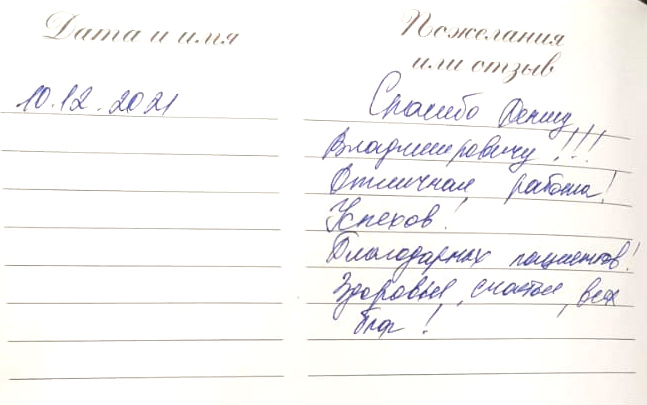 Дата и имя
Пожелания
или отзыв
10.12.2021
Спасибо Денису
Владимировичу!!!
Отличная работа!
Успехов!
Благодарных пациентов!
Здоровья, счастья, всех
благ!